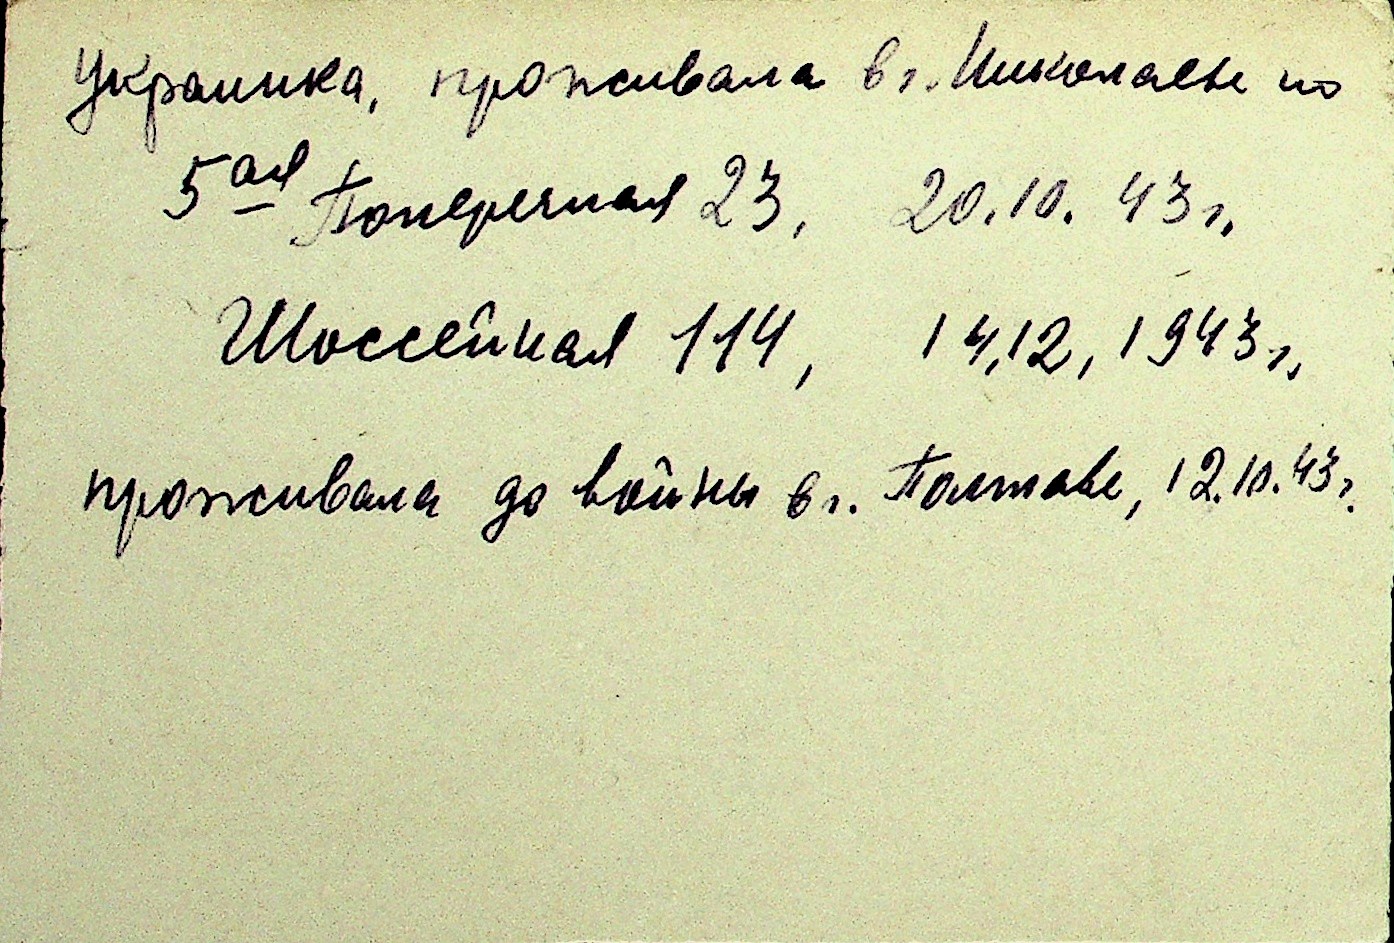 Украинка, проживала в г. Николаеве по
5ая Поперечная 23, 20.10.43г.
Шоссейная 114, 14,12,1943г.
проживала до войны в г. Полтаве, 12.10.43г.